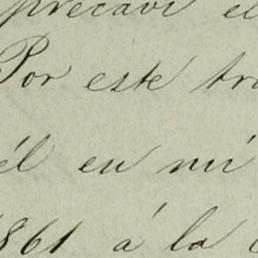 precavi el
Por esté tra
él en mi
1861 á la